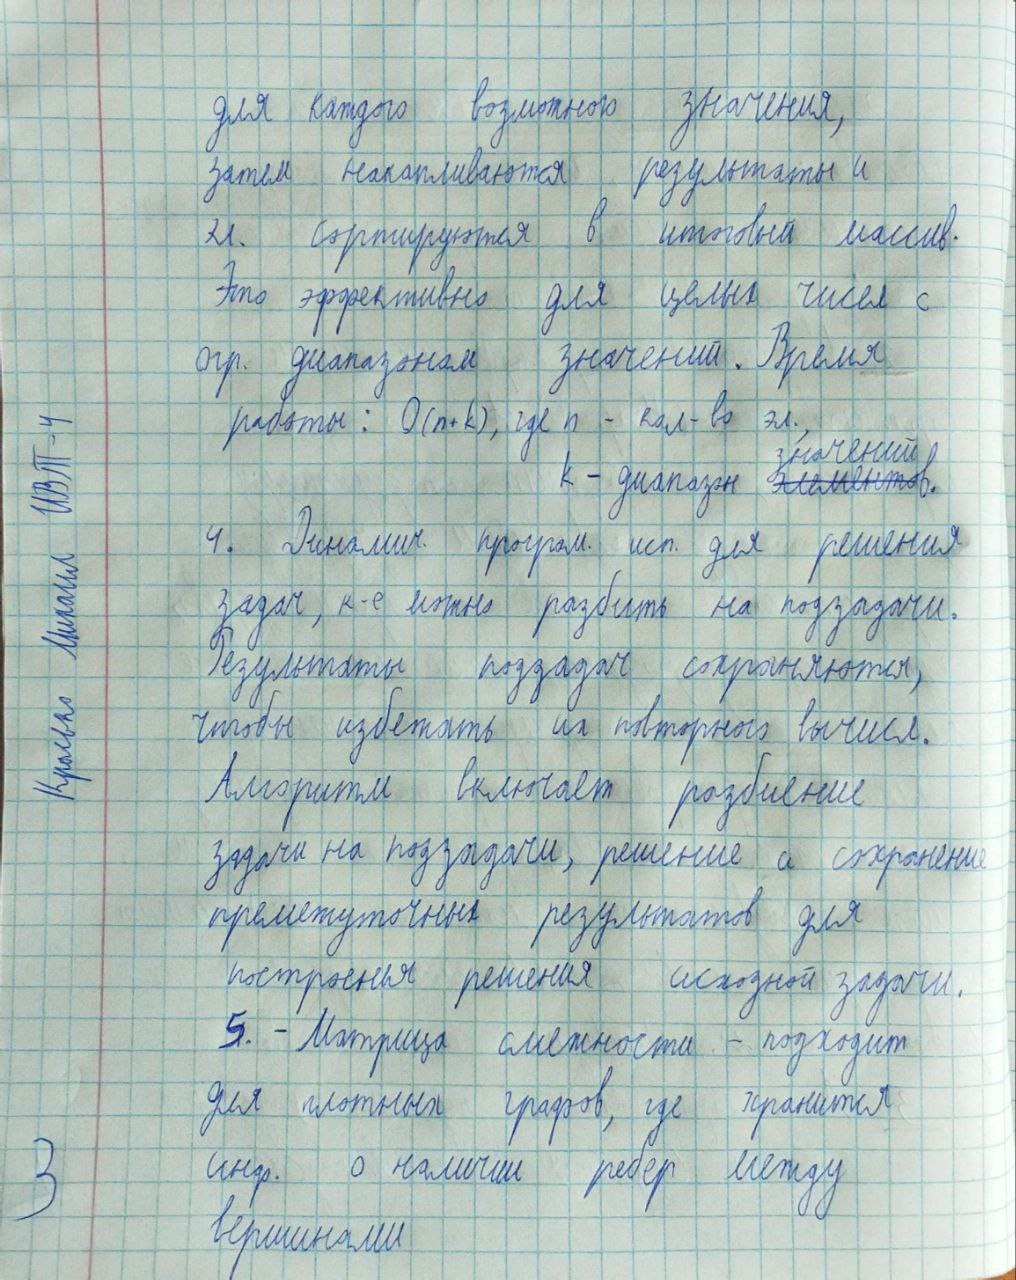 для каждого возможного значения,
затем накапливаются результаты и
эл. сортируются в итоговый массив.
Это эффективно для целых чисел с
огр. диапазоном значений. Время
работы: O(n+k), где n - кол-во эл.,
значений
k - диапазон элементов.
4. Динамич. програм. исп. для решения
задач, к-е можно разбить на подзадачи.
Результаты подзадач сохраняются,
чтобы избежать их повторного вычисл.
Алгоритм включает разбиение
задачи на подзадачи, решение и сохранение
премежуточных результатов для
построения решения исходной задачи.
5. - Матрица смежности - подходит
для плотных графов, где хранится
инф. о наличии ребер между
вершинами
Михаил ИВТ-4
3